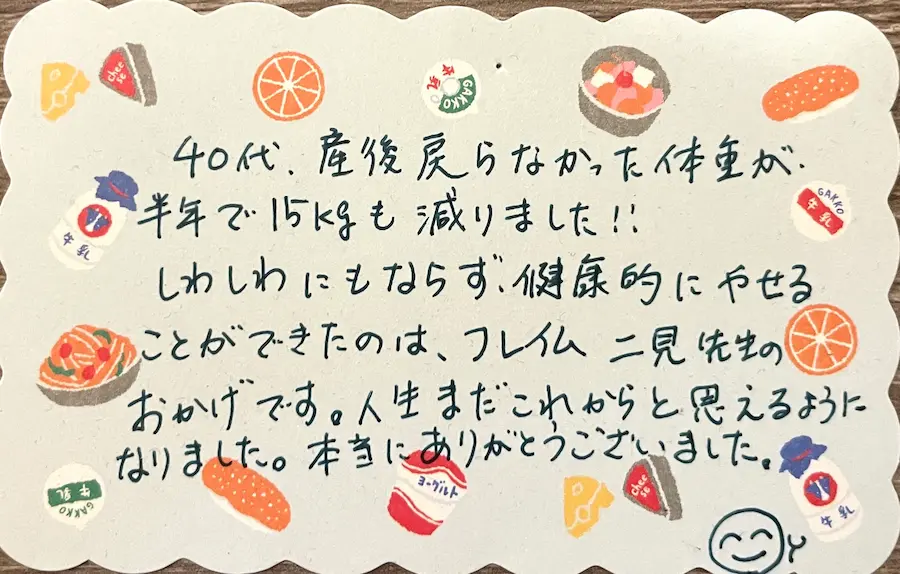 chee se
GAKKO 牛乳
40代、産後戻らなかった体重が、
GAKKO 牛乳
半年で15kgも減りました!!
牛乳
しわしわにもならず、健康的にやせる
ことができたのは、フレイム 二見先生の
おかげです。人生まだこれからと思えるように
なりました。本当にありがとうございました。
ヨーグルト
chee se
GAKKO 牛乳
牛乳